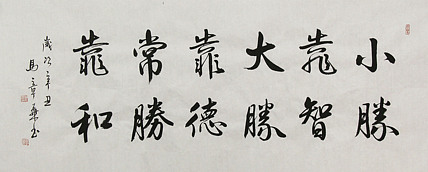 小勝
靠智
大勝
靠德
常勝
靠和
歲次辛丑
馬章